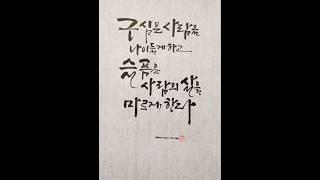 구실은 사람을
나이들게 하고
슬픔은
사람의 삶을
마르게 한다